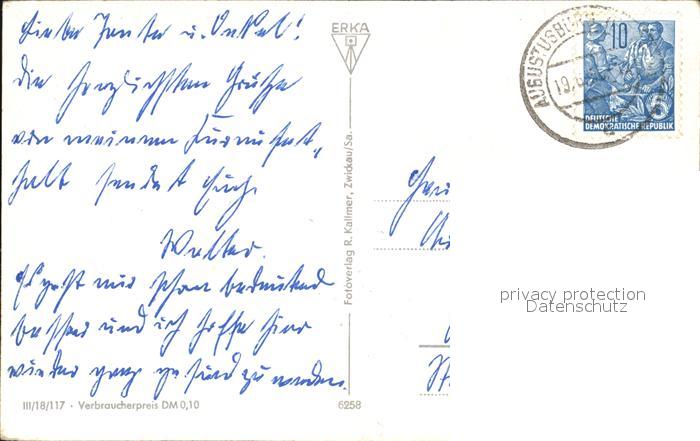 Liebe Tante u. Onkel!
die herzlichsten Grüße
von meinem Kuraufent-
halt sendet Euch
Walter.
Es geht mir schon bedeutend
besser und ich hoffe hier
wieder ganz gesund zu werden.
III/18/117 · Verbraucherpreis DM 0,10
6258
ERKA
Fotoverlag R. Kallmer, Zwickau/Sa.
AUGUSTUSBURG
10
5
DEUTSCHE
DEMOKRATISCHE REPUBLIK
privacy protection
Datenschutz